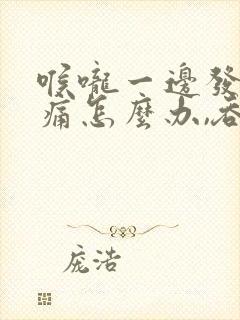 喉嚨一邊發
痛怎麼办,吞
庞浩